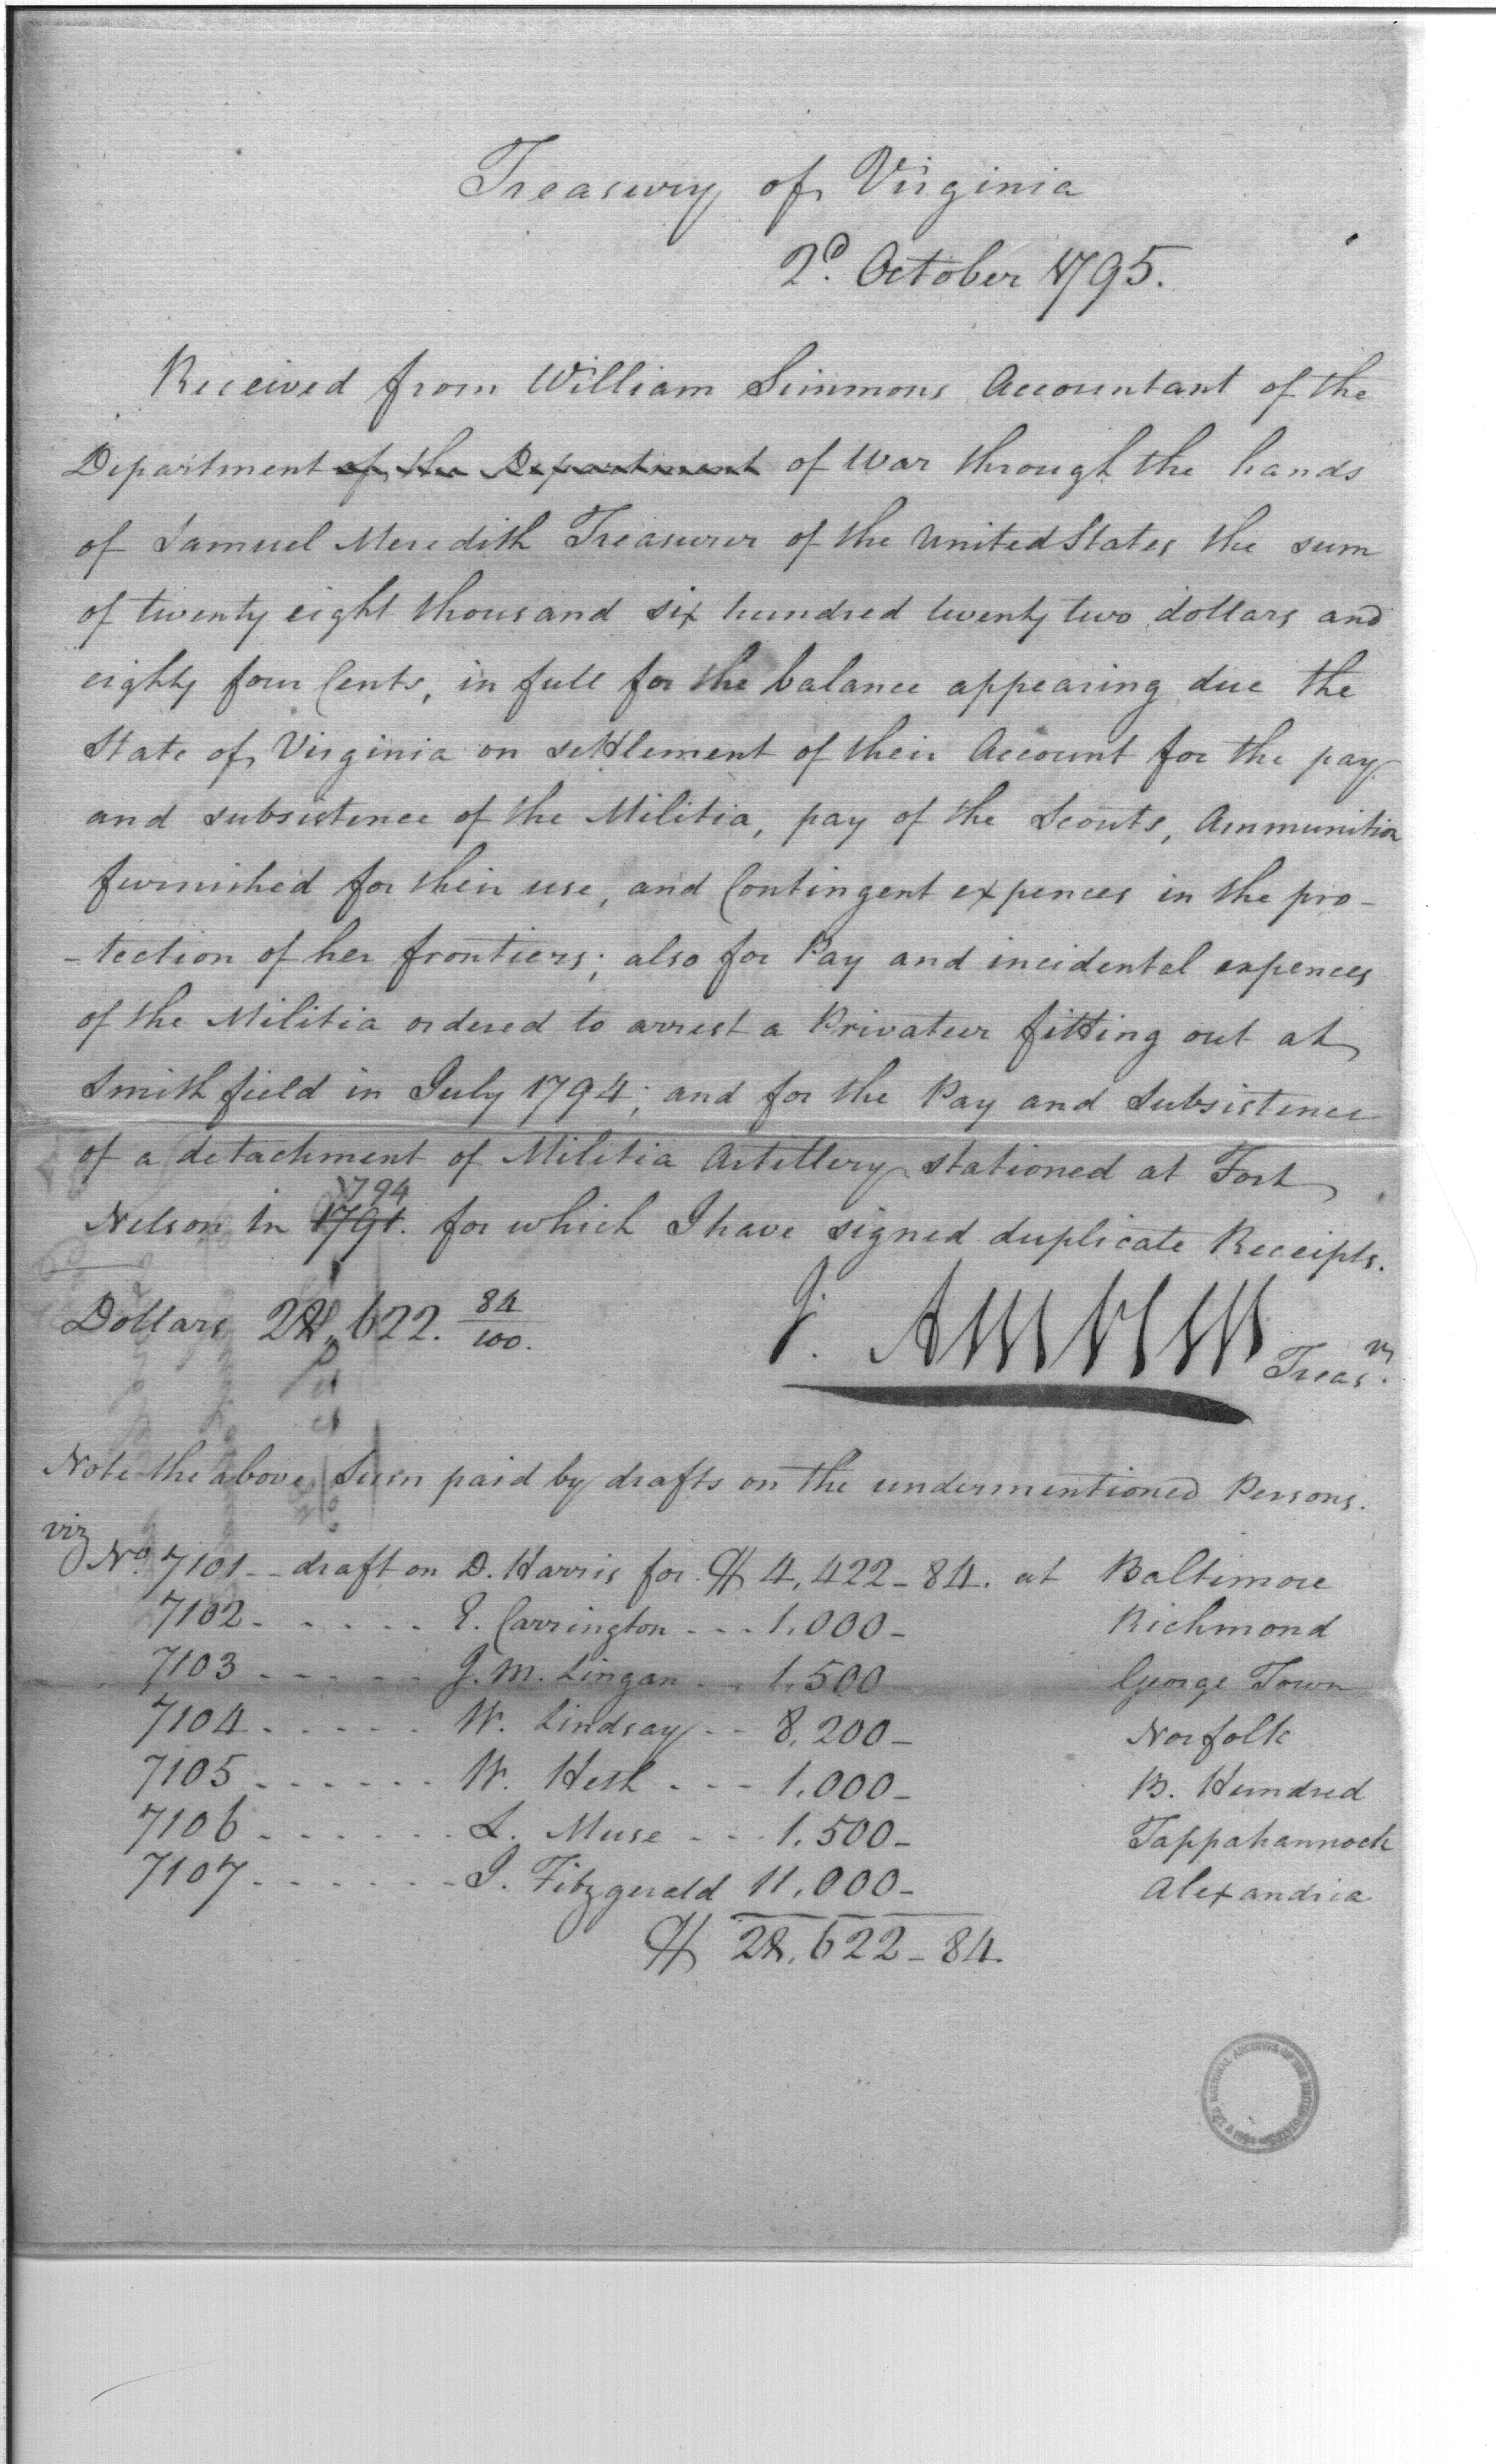 Treasury of Virginia
2d. October 1795.
Received from William Simmons Accountant of the
Department of the Department of War through the hands
of Samuel Meredith Treasurer of the United States the sum
of twenty eight thousand six hundred twenty two dollars and
eighty four Cents, in full for the balance appearing due the
State of Virginia on settlement of their Account for the pay
and subsistence of the Militia, pay of the Scouts, Ammunition
furnished for their use, and Contingent expences in the pro-
-tection of her frontiers; also for Pay and incidental expences
of the Militia ordered to arrest a Privateer fitting out at
Smithfield in July 1794; and for the Pay and Subsistence
of a detachment of Militia Artillery stationed at Fort
1794
Nelson in 1791. for which I have signed duplicate Receipts.
Dollars 28,622. 84/100.
J. Ambler Treasr.
Note the above Sum paid by drafts on the undermentioned Persons.
viz
No. 7101 -- draft on D. Harris for $ 4,422-84. at Baltimore
7102 - - - - - E. Carrington - - - 1.000- Richmond
7103 - - - - - J. M. Lingan - - 1.500 George Town
7104 - - - - - W. Lindsay - - 8,200- Norfolk
7105 - - - - - - W. Heth - - - 1.000- B. Hundred
7106 - - - - - - L. Muse - - - 1.500- Tappahannock
7107 - - - - - - J. Fitzgerald 11,000- Alexandria
$ 28,622-84.